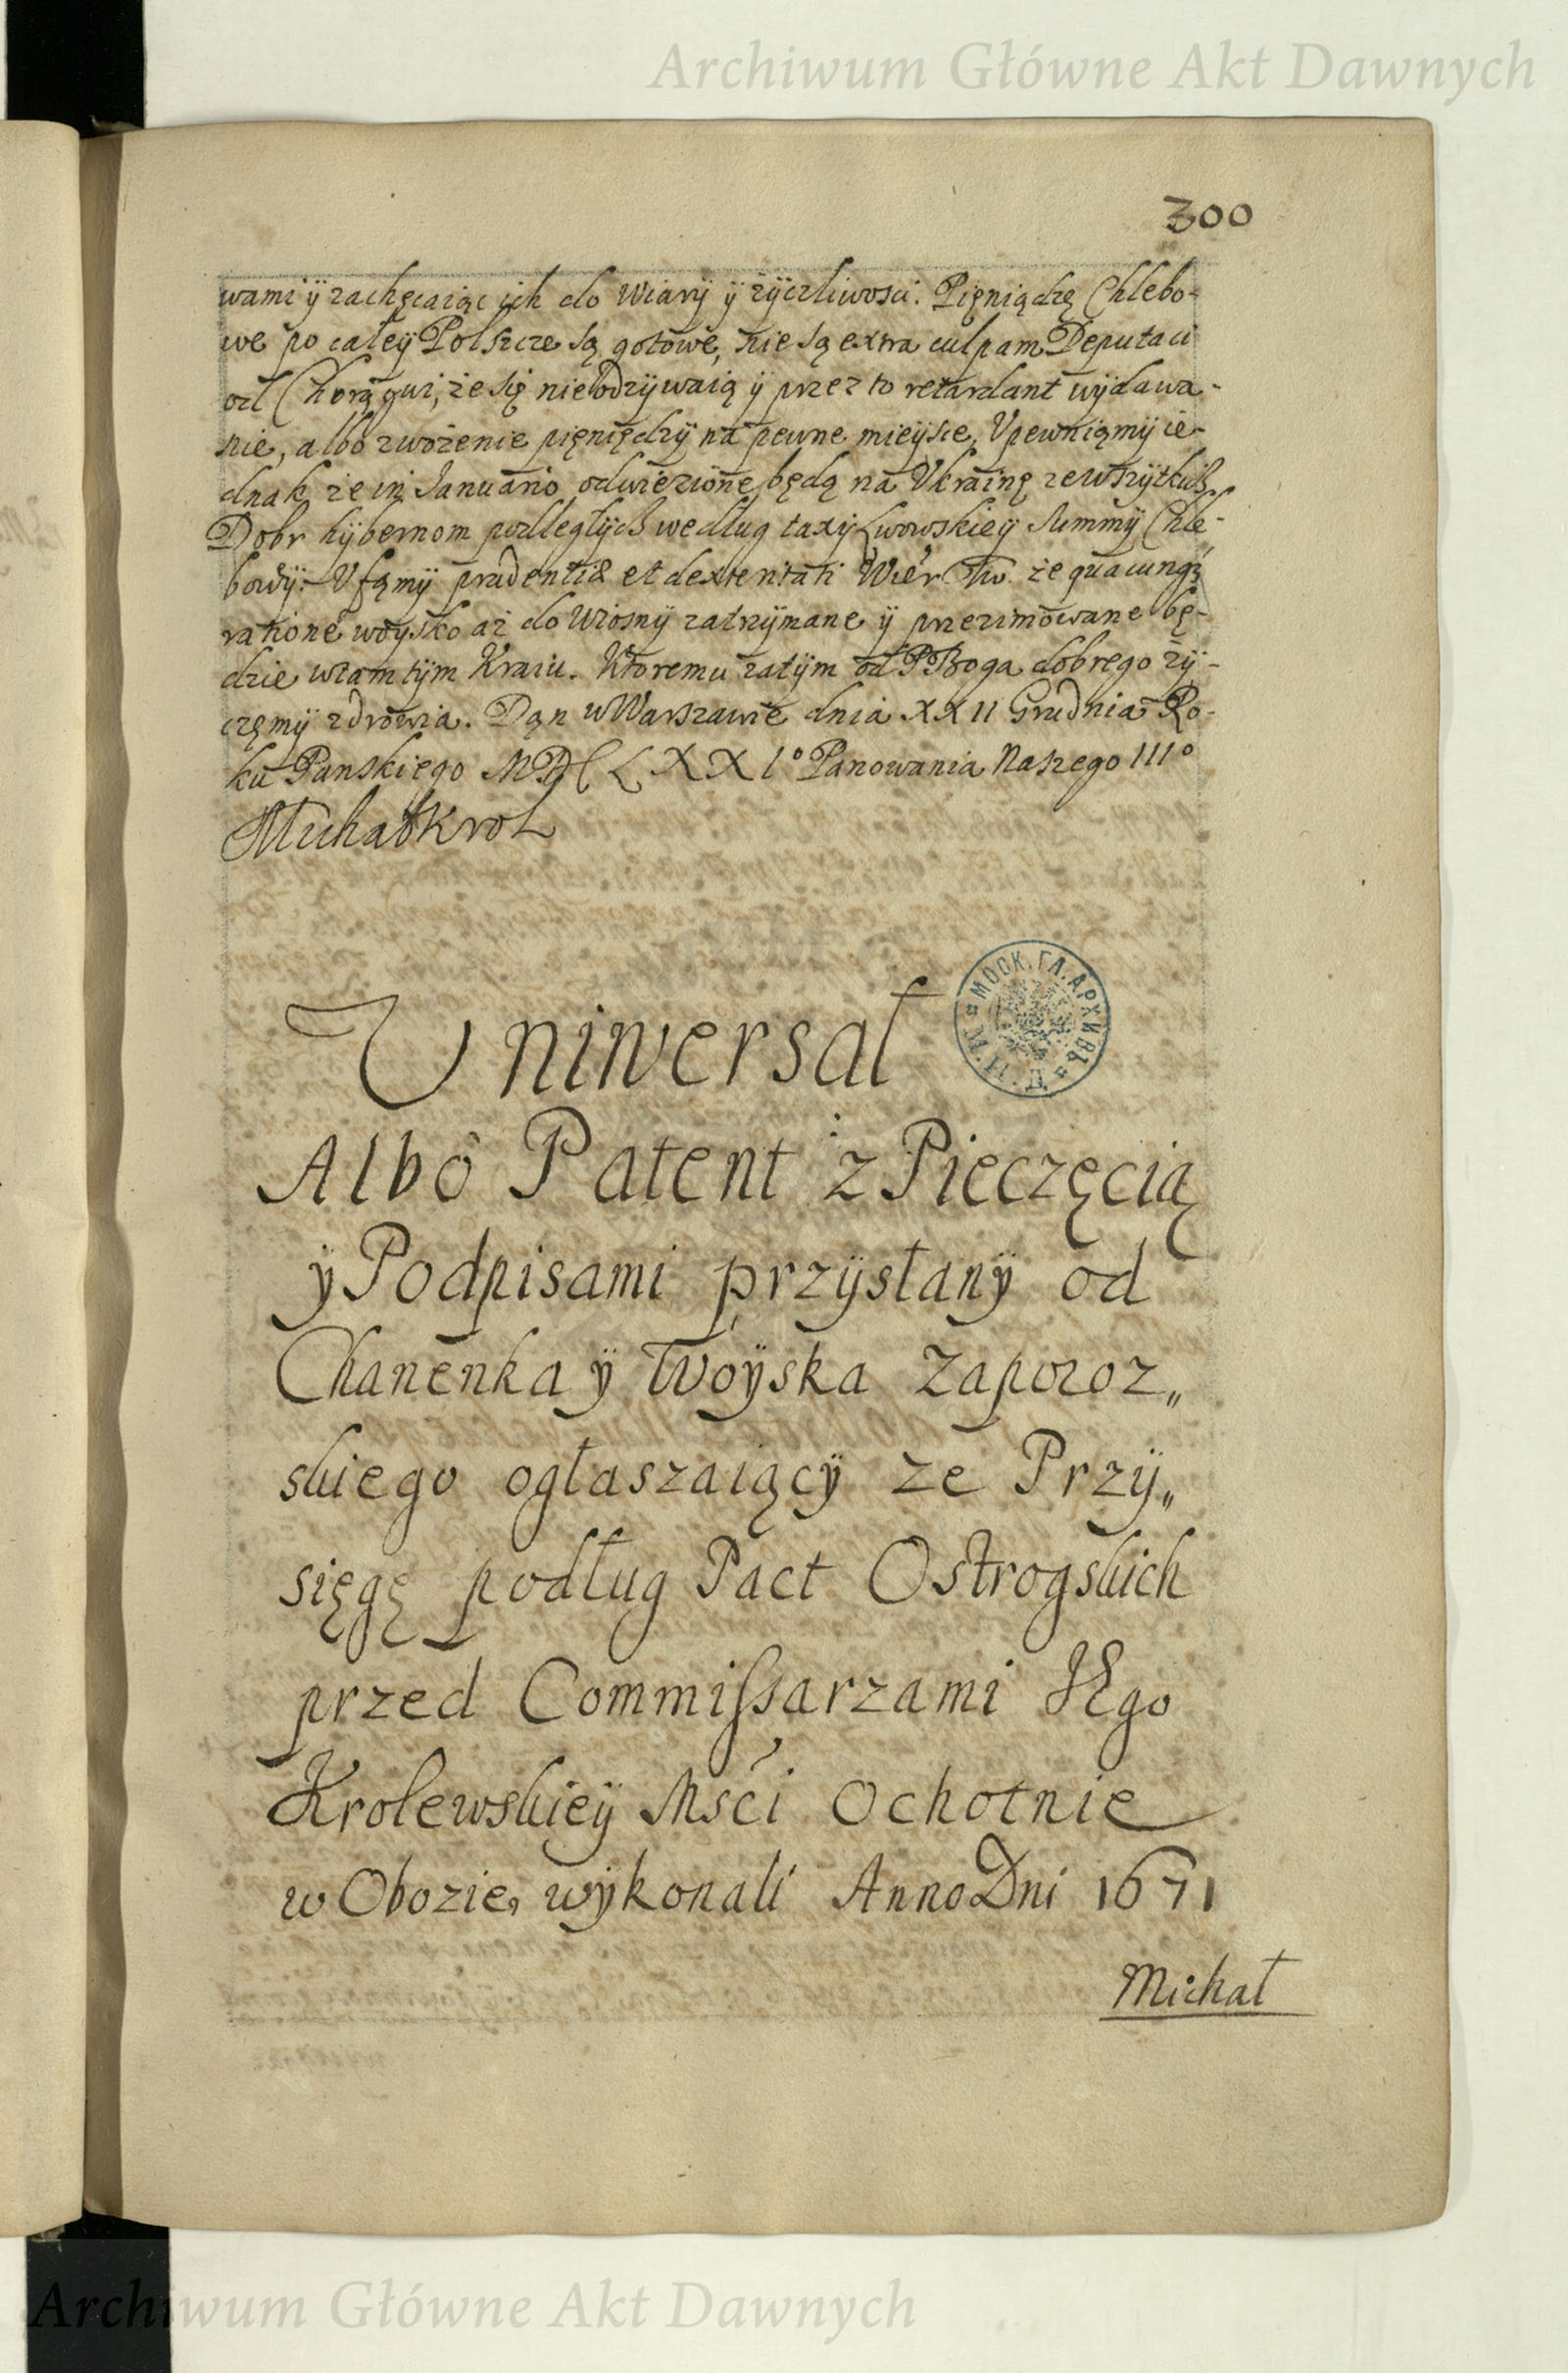 Archiwum Główne Akt Dawnych
300
wami ÿ zachęcaiąc ich do Wiarÿ ÿ zÿczliwosci. Pięniądzę Chlebo-
we po całeÿ Polszcze są gotowe, nie są extra culpam Deputaci
od Chorągwi, że się nie odzÿwaią ÿ przez to retardant wÿdawa-
nie, albo zwożenie pięnięدzÿ na pewne mieÿsce, Vpewniąmÿ ie-
dnak że in Januario odwiezione będą na Vkrainę ze wszÿtkich
Dobr hÿbernom podległÿch według taxÿ Lwowskieÿ Summÿ Chle-
bowÿ. Vfąmÿ prudentiæ et dexteritati Wier. Tw. że quacunq3
ratione woÿsko aż do Wiosnÿ zatrzÿmane ÿ przezimowane bę-
dzie w tamtÿm Kraiu. Ktoremu zatÿm od P Boga dobrego zÿ-
częmÿ zdrowia. Dąn w Warszawie dnia XXII Grudnia Ro-
ku Panskiego MDCLXXI° Panowania Naszego III°
Michał Krol
Uniwersał
Albo Patent z Pieczęcią
ÿ Podpisami przÿsłanÿ od
Chanenka ÿ Woÿska Zaporoz„
skiego ogłaszaiącÿ ze Przÿ„
sięgę podług Pact Ostrogskich
przed Commissarzami JEgo
Krolewskieÿ Msci Ochotnie
w Obozie, wÿkonali Anno Dni 1671
МОСК. ГЛ. АРХИВЪ
Michał
Archiwum Główne Akt Dawnych